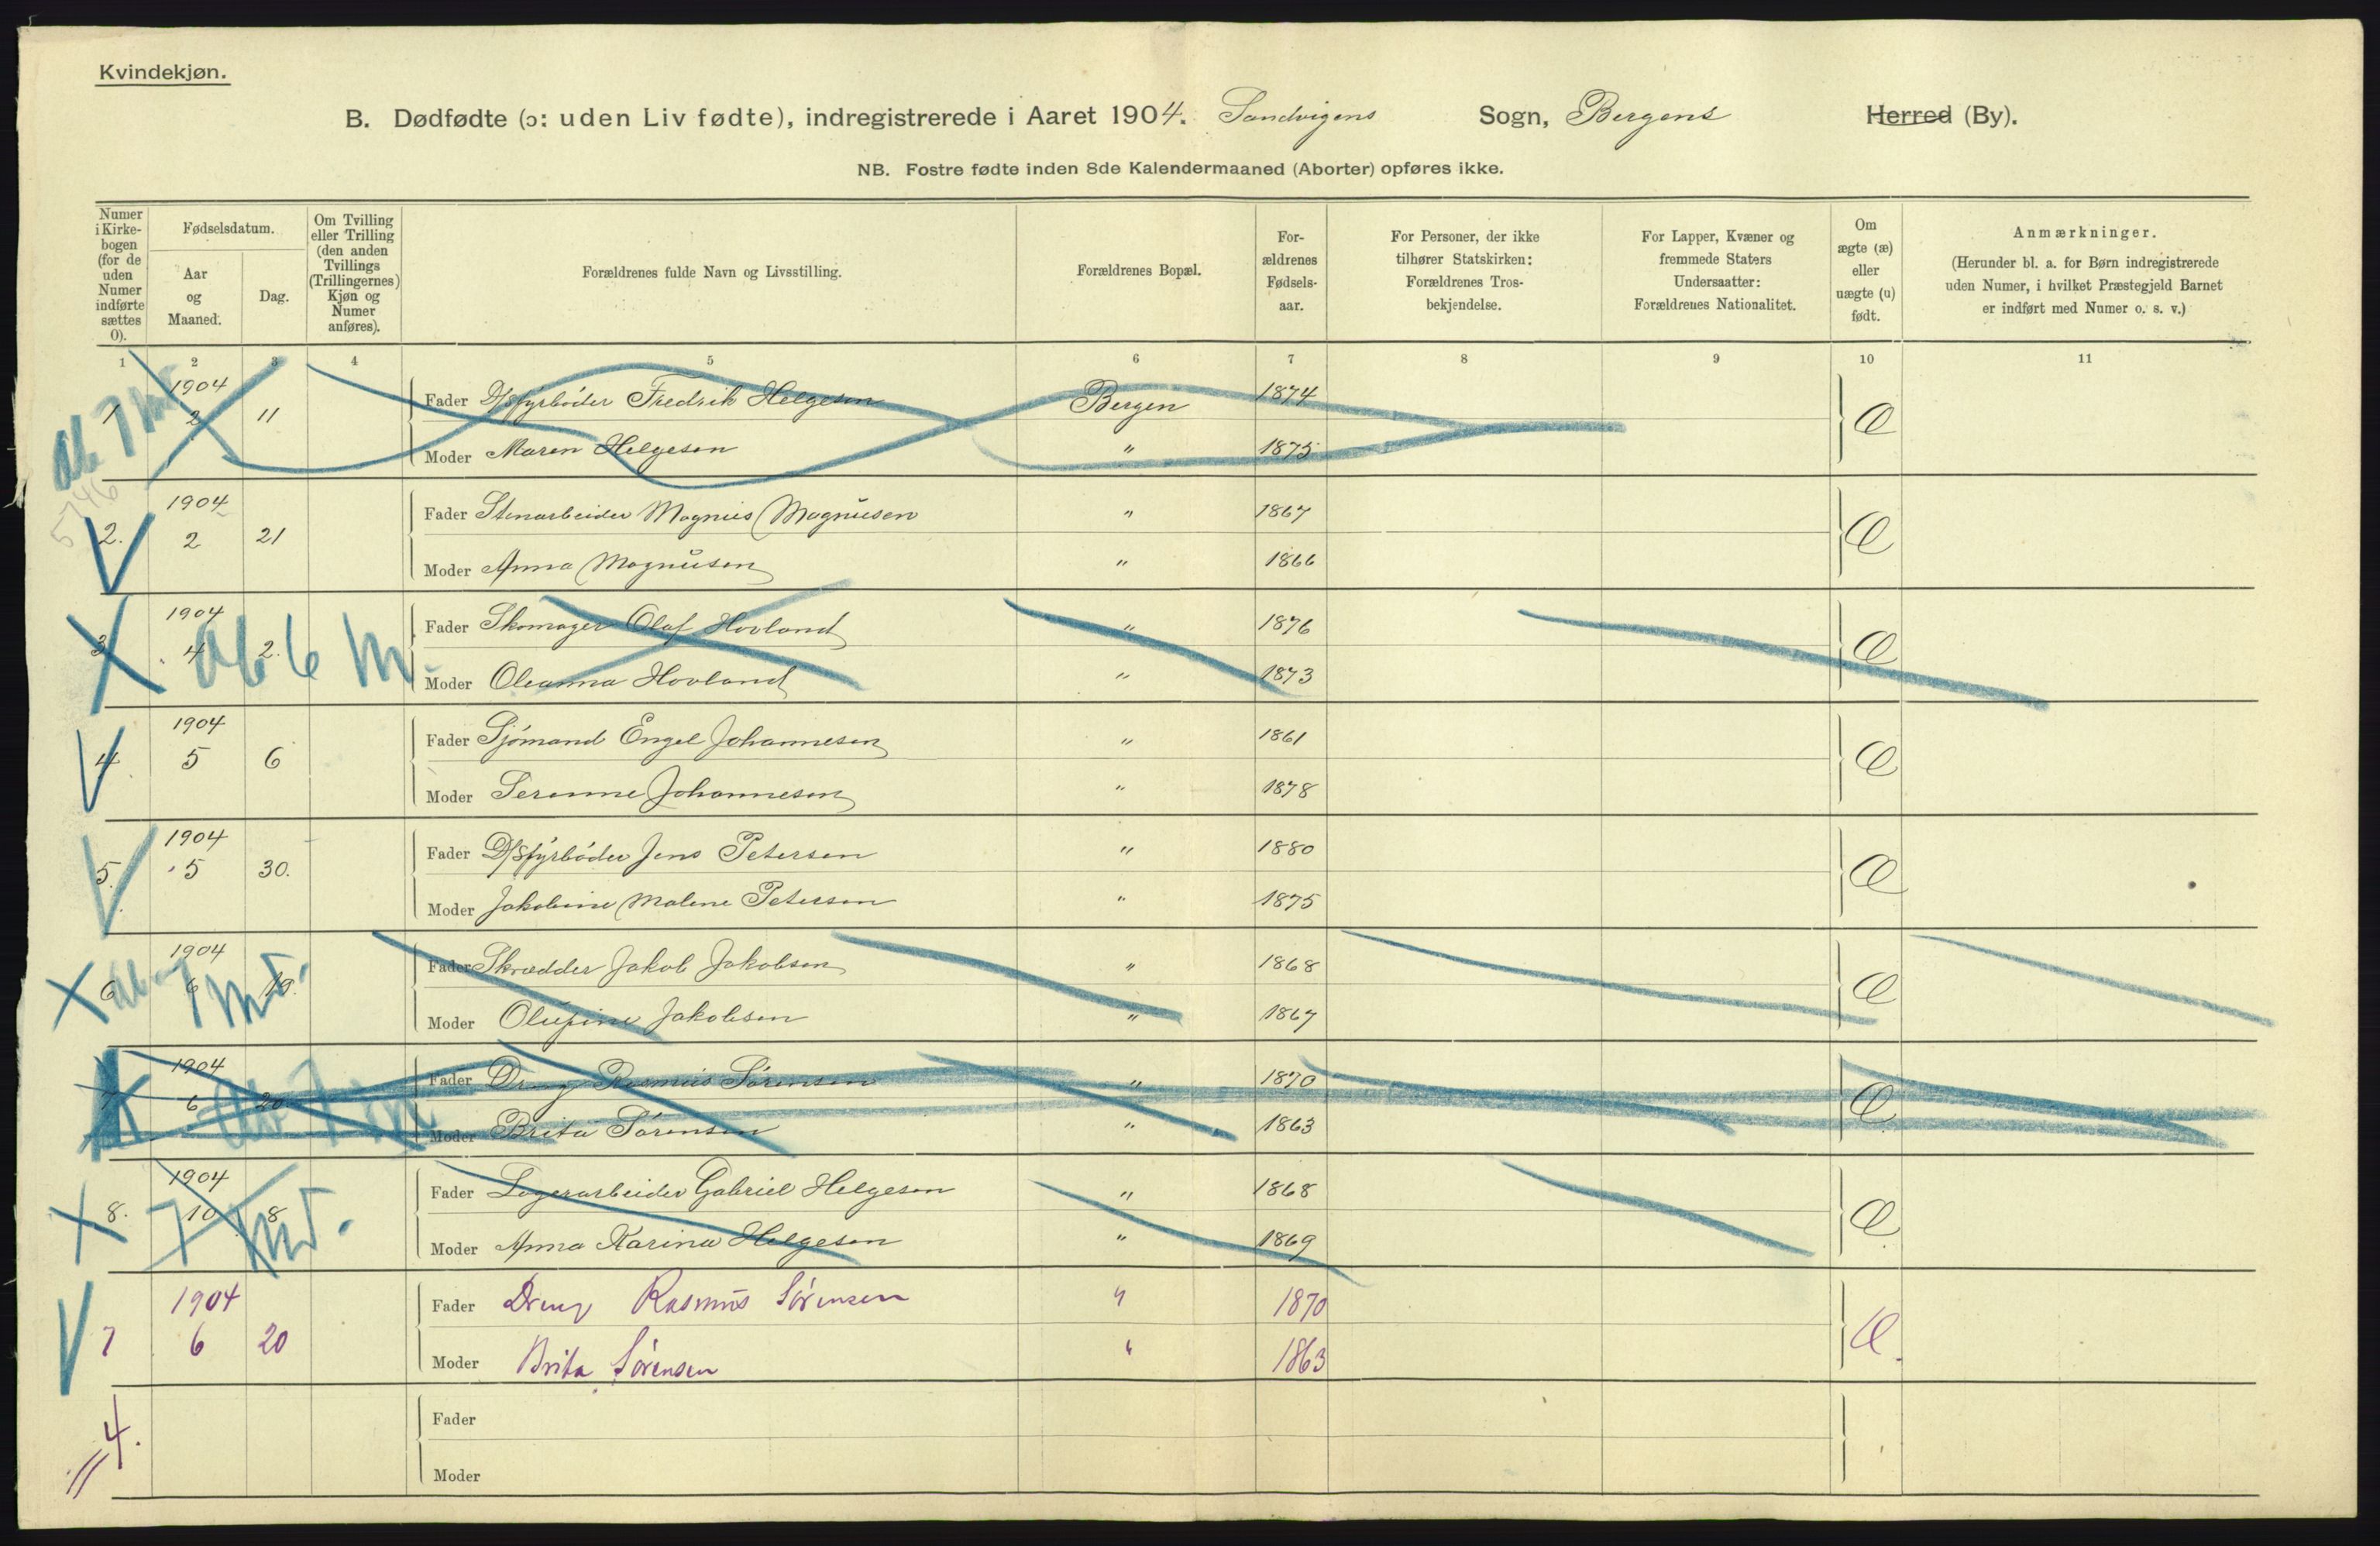 Kvindekjøn.
B. Dødfødte (ɔ: uden Liv fødte), indregistrerede i Aaret 1904. Sandvigens Sogn, Bergens Herred (By).
NB. Fostre fødte inden 8de Kalendermaaned (Aborter) opføres ikke.
Numer i Kirke-bogen (for de uden Numer indførte sættes 0).
Fødselsdatum.
Aar og Maaned.
Dag.
Om Tvilling eller Trilling (den anden Tvillings (Trillingernes) Kjøn og Numer anføres).
Forældrenes fulde Navn og Livsstilling.
Forældrenes Bopæl.
For-ældrenes Fødsels-aar.
For Personer, der ikke tilhører Statskirken: Forældrenes Tros-bekjendelse.
For Lapper, Kvæner og fremmede Staters Undersaatter: Forældrenes Nationalitet.
Om ægte (æ) eller uægte (u) født.
Anmærkninger.
(Herunder bl. a. for Børn indregistrerede uden Numer, i hvilket Præstegjeld Barnet er indført med Numer o. s. v.)
1 2 3 4 5 6 7 8 9 10 11
ab 7 m
1904
1 2 11 Fader D/Sfyrbøder Fredrik Helgesen Bergen 1874 Æ
Moder Maren Helgesen " 1875
5746
1904
2. 2 21 Fader Stenarbeider Magnus Magnusen " 1867 Æ
Moder Anna Magnusen " 1866
1904
3 4 2. Fader Skomager Olaf Hovland " 1876 Æ
ab 6 m
Moder Oleanna Hovland " 1873
1904
4 5 6 Fader Sjømand Engel Johannesen " 1861 Æ
Moder Serenne Johannesen " 1878
1904
5. 5 30. Fader D/Sfyrbøder Jens Petersen " 1880 Æ
Moder Jakobine Malene Petersen " 1875
1904
6 6 19. Fader Skrædder Jakob Jakobsen " 1868 Æ
ab 7 md.
Moder Olufine Jakobsen " 1867
1904
7 6 20 Fader Dreng Rasmus Sørensen " 1870 Æ
ab 7 m
Moder Brita Sørensen " 1863
1904
8. 10 8 Fader Lagerarbeider Gabriel Helgesen " 1868 Æ
7 md.
Moder Anna Karina Helgesen " 1869
1904
7 6 20 Fader Dreng Rasmus Sørensen " 1870 Æ.
Moder Brita Sørensen " 1863
4. Fader
Moder